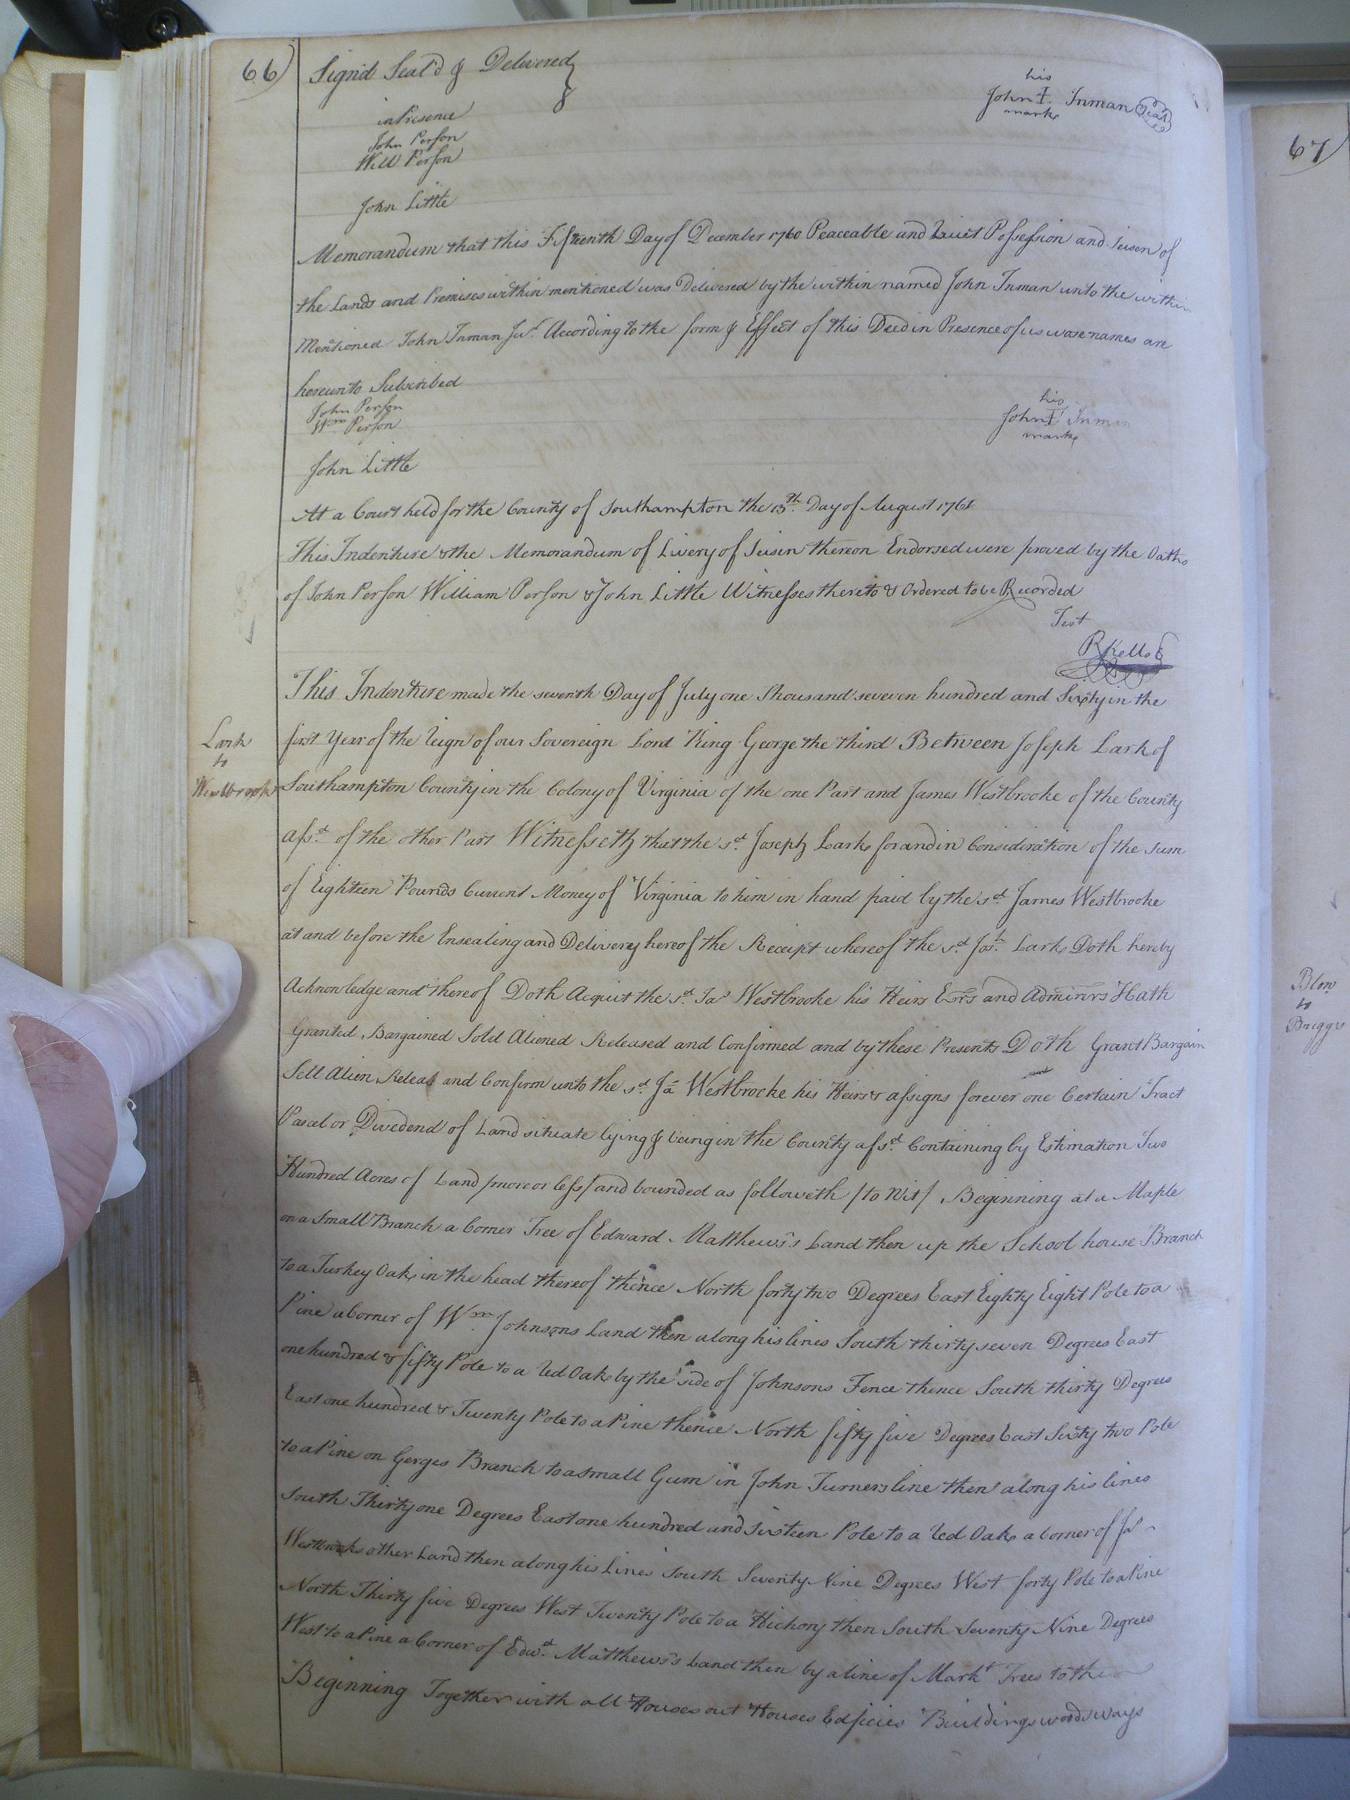 66)
Signd Seal'd & Delivered
in Presence
John Person
Will Person
John Little
his
John I Inman Seal
mark
Memorandum that this Fifteenth Day of December 1760 Peaceable and Quiet Possession and Seisen of
the Lands and Premises within mentioned was Delivered by the within named John Inman unto the within
Mentioned John Inman Jur. According to the form & Effect of this Deed in Presence of us wase names are
hereunto Subscribed
John Person
Wm Person
John Little
his
John I Inman
mark
At a Court held for the County of Southampton the 13th Day of August 1761
This Indenture & the Memorandum of Livery of Seisin thereon Endorsed were proved by the Oaths
of John Person William Person & John Little Witnesses thereto & Ordered to be Recorded
Test
RKello
Lark
to
Westbrook
This Indenture made the seventh Day of July one thousand seveven hundred and Sixty in the
first Year of the Reign of our Sovereign Lord King George the third Between Joseph Lark of
Southampton County in the Colony of Virginia of the one Part and James Westbrooke of the County
afsd. of the other Part Witnesseth that the sd. Joseph Lark for and in Consideration of the sum
of Eighteen Pounds Current Money of Virginia to him in hand paid by the sd. James Westbrooke
at and before the Ensealing and Delivery hereof the Receipt whereof the sd. Josh. Lark Doth hereby
Acknowledge and thereof Doth Acquit the sd. Jas Westbrooke his Heirs Exrs and Adminrs Hath
Granted Bargained Sold Aliened Released and Confirmed and by these Presents Doth Grant Bargain
Sell Alien Releas and Confirm unto the sd. Ja Westbrooke his Heirs & assigns forever one Certain Tract
Pascel or Dividend of Land situate lying & being in the County afsd. Containing by Estimation Two
Hundred Acres of Land /more or less/ and bounded as followeth /to Wit/ Beginning at a Maple
on a Small Branch a Corner Tree of Edward Matthews's Land then up the School house Branch
to a Turkey Oak in the head thereof thence North forty two Degrees East Eighty Eight Pole to a
Pine a Corner of Wm Johnsons Land then along his lines South thirty seven Degrees East
one hundred & fifty Pole to a Red Oak by the side of Johnsons Fence thence South thirty Degrees
East one hundred & Twenty Pole to a Pine thence North fifty five Degrees East Sixty two Pole
to a Pine on Gerges Branch to a small Gum in John Turners line then along his lines
South Thirty one Degrees East one hundred and Sixteen Pole to a Red Oak a Corner of Jas
Westbrook other Land then along his Lines South Seventy Nine Degrees West forty Pole to a Pine
North Thirty five Degrees West Twenty Pole to a Hickory then South Seventy Nine Degrees
West to a Pine a Corner of Edwd. Matthews's Land then by a line of Markt Trees to the
Beginning Together with all Houses out Houses Edificies Buildings woods ways
67)
Blow
to
Briggs